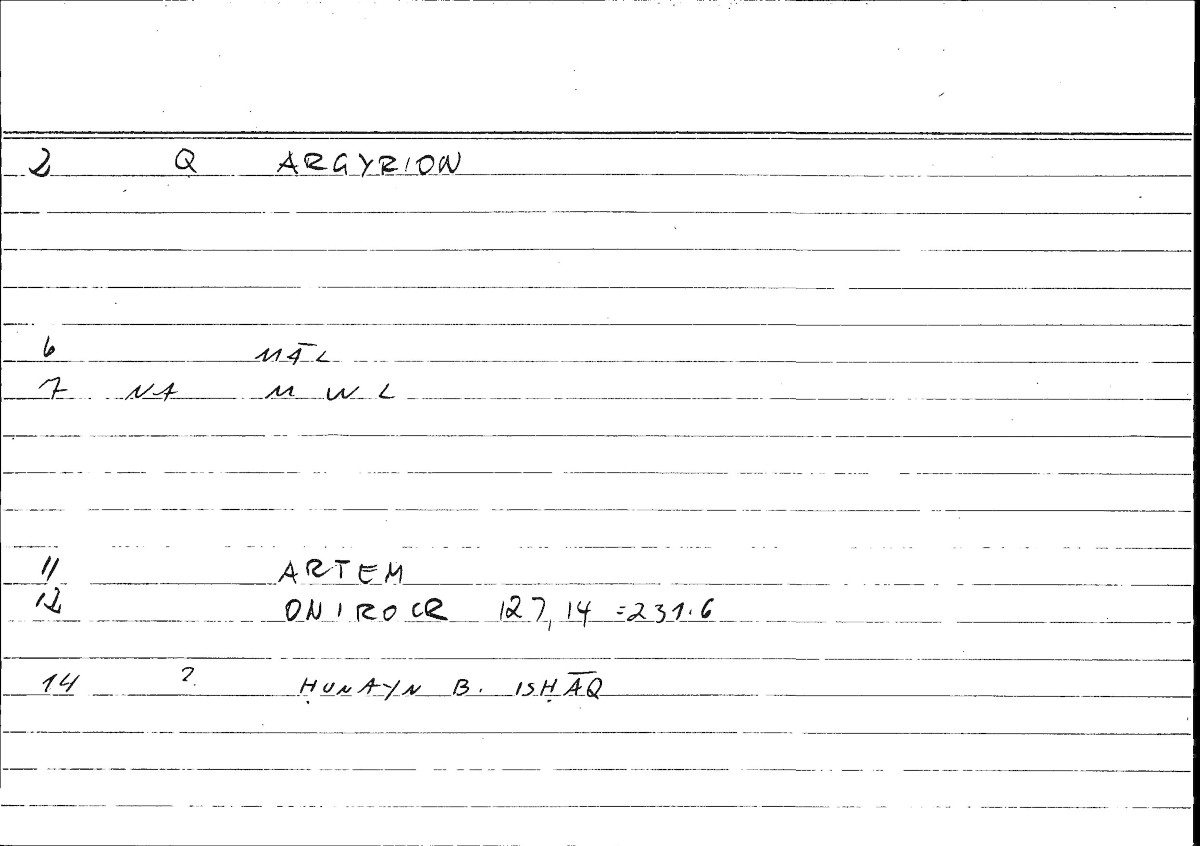 2 Q ARGYRION
6 MĀL
7 NA M W L
11 ARTEM
12 ONIROCR 127,14 =231.6
14 ? ḤUNAYN B. ISḤĀQ